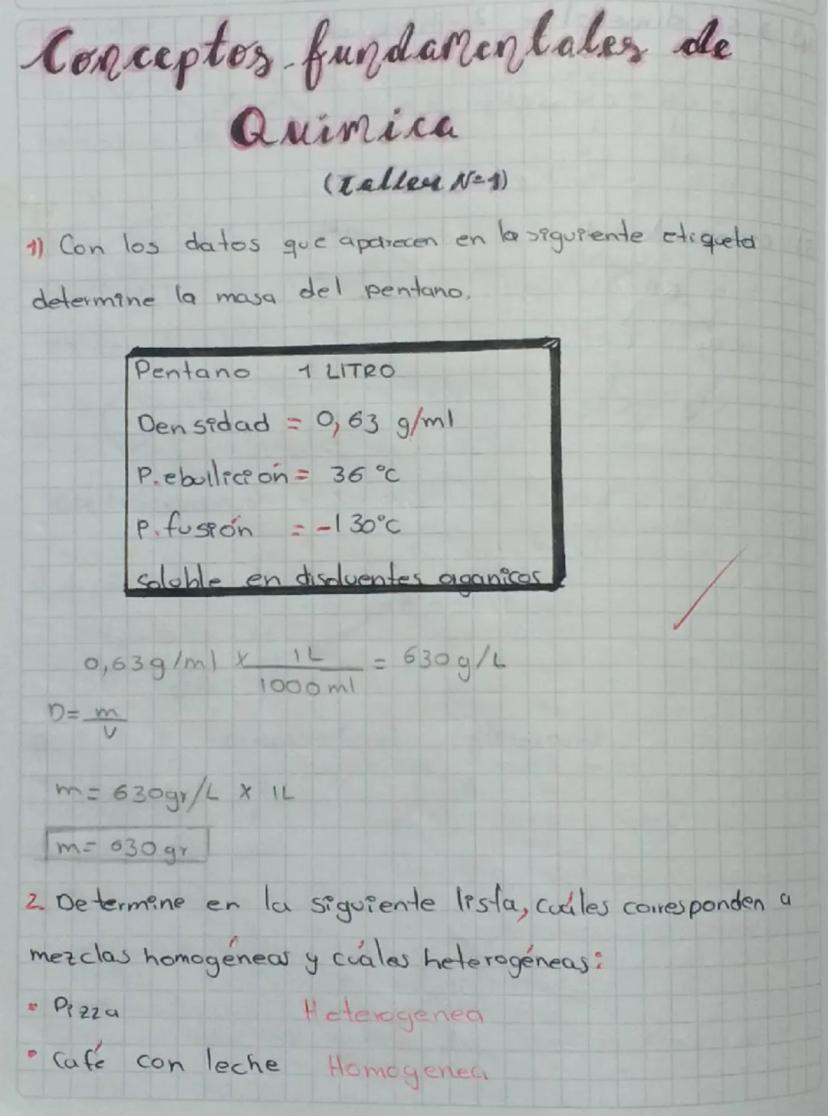 Conceptos fundamentales de
Quimica
(Taller N=1)
1) Con los datos que aparecen en la siguiente etiqueta
determine la masa del pentano.
Pentano 1 LITRO
Densidad = 0,63 g/ml
P. ebullición = 36 °C
P. fusión = -130°C
soluble en disolventes oganicos
0,63g/ml x 1L / 1000ml = 630g/L
D= m / V
m= 630gr/L x 1L
m= 630 gr
2. Determine en la siguiente lista, cuáles corresponden a
mezclas homogéneas y cuáles heterogéneas:
• Pizza Heterogenea
• Café con leche Homogenea